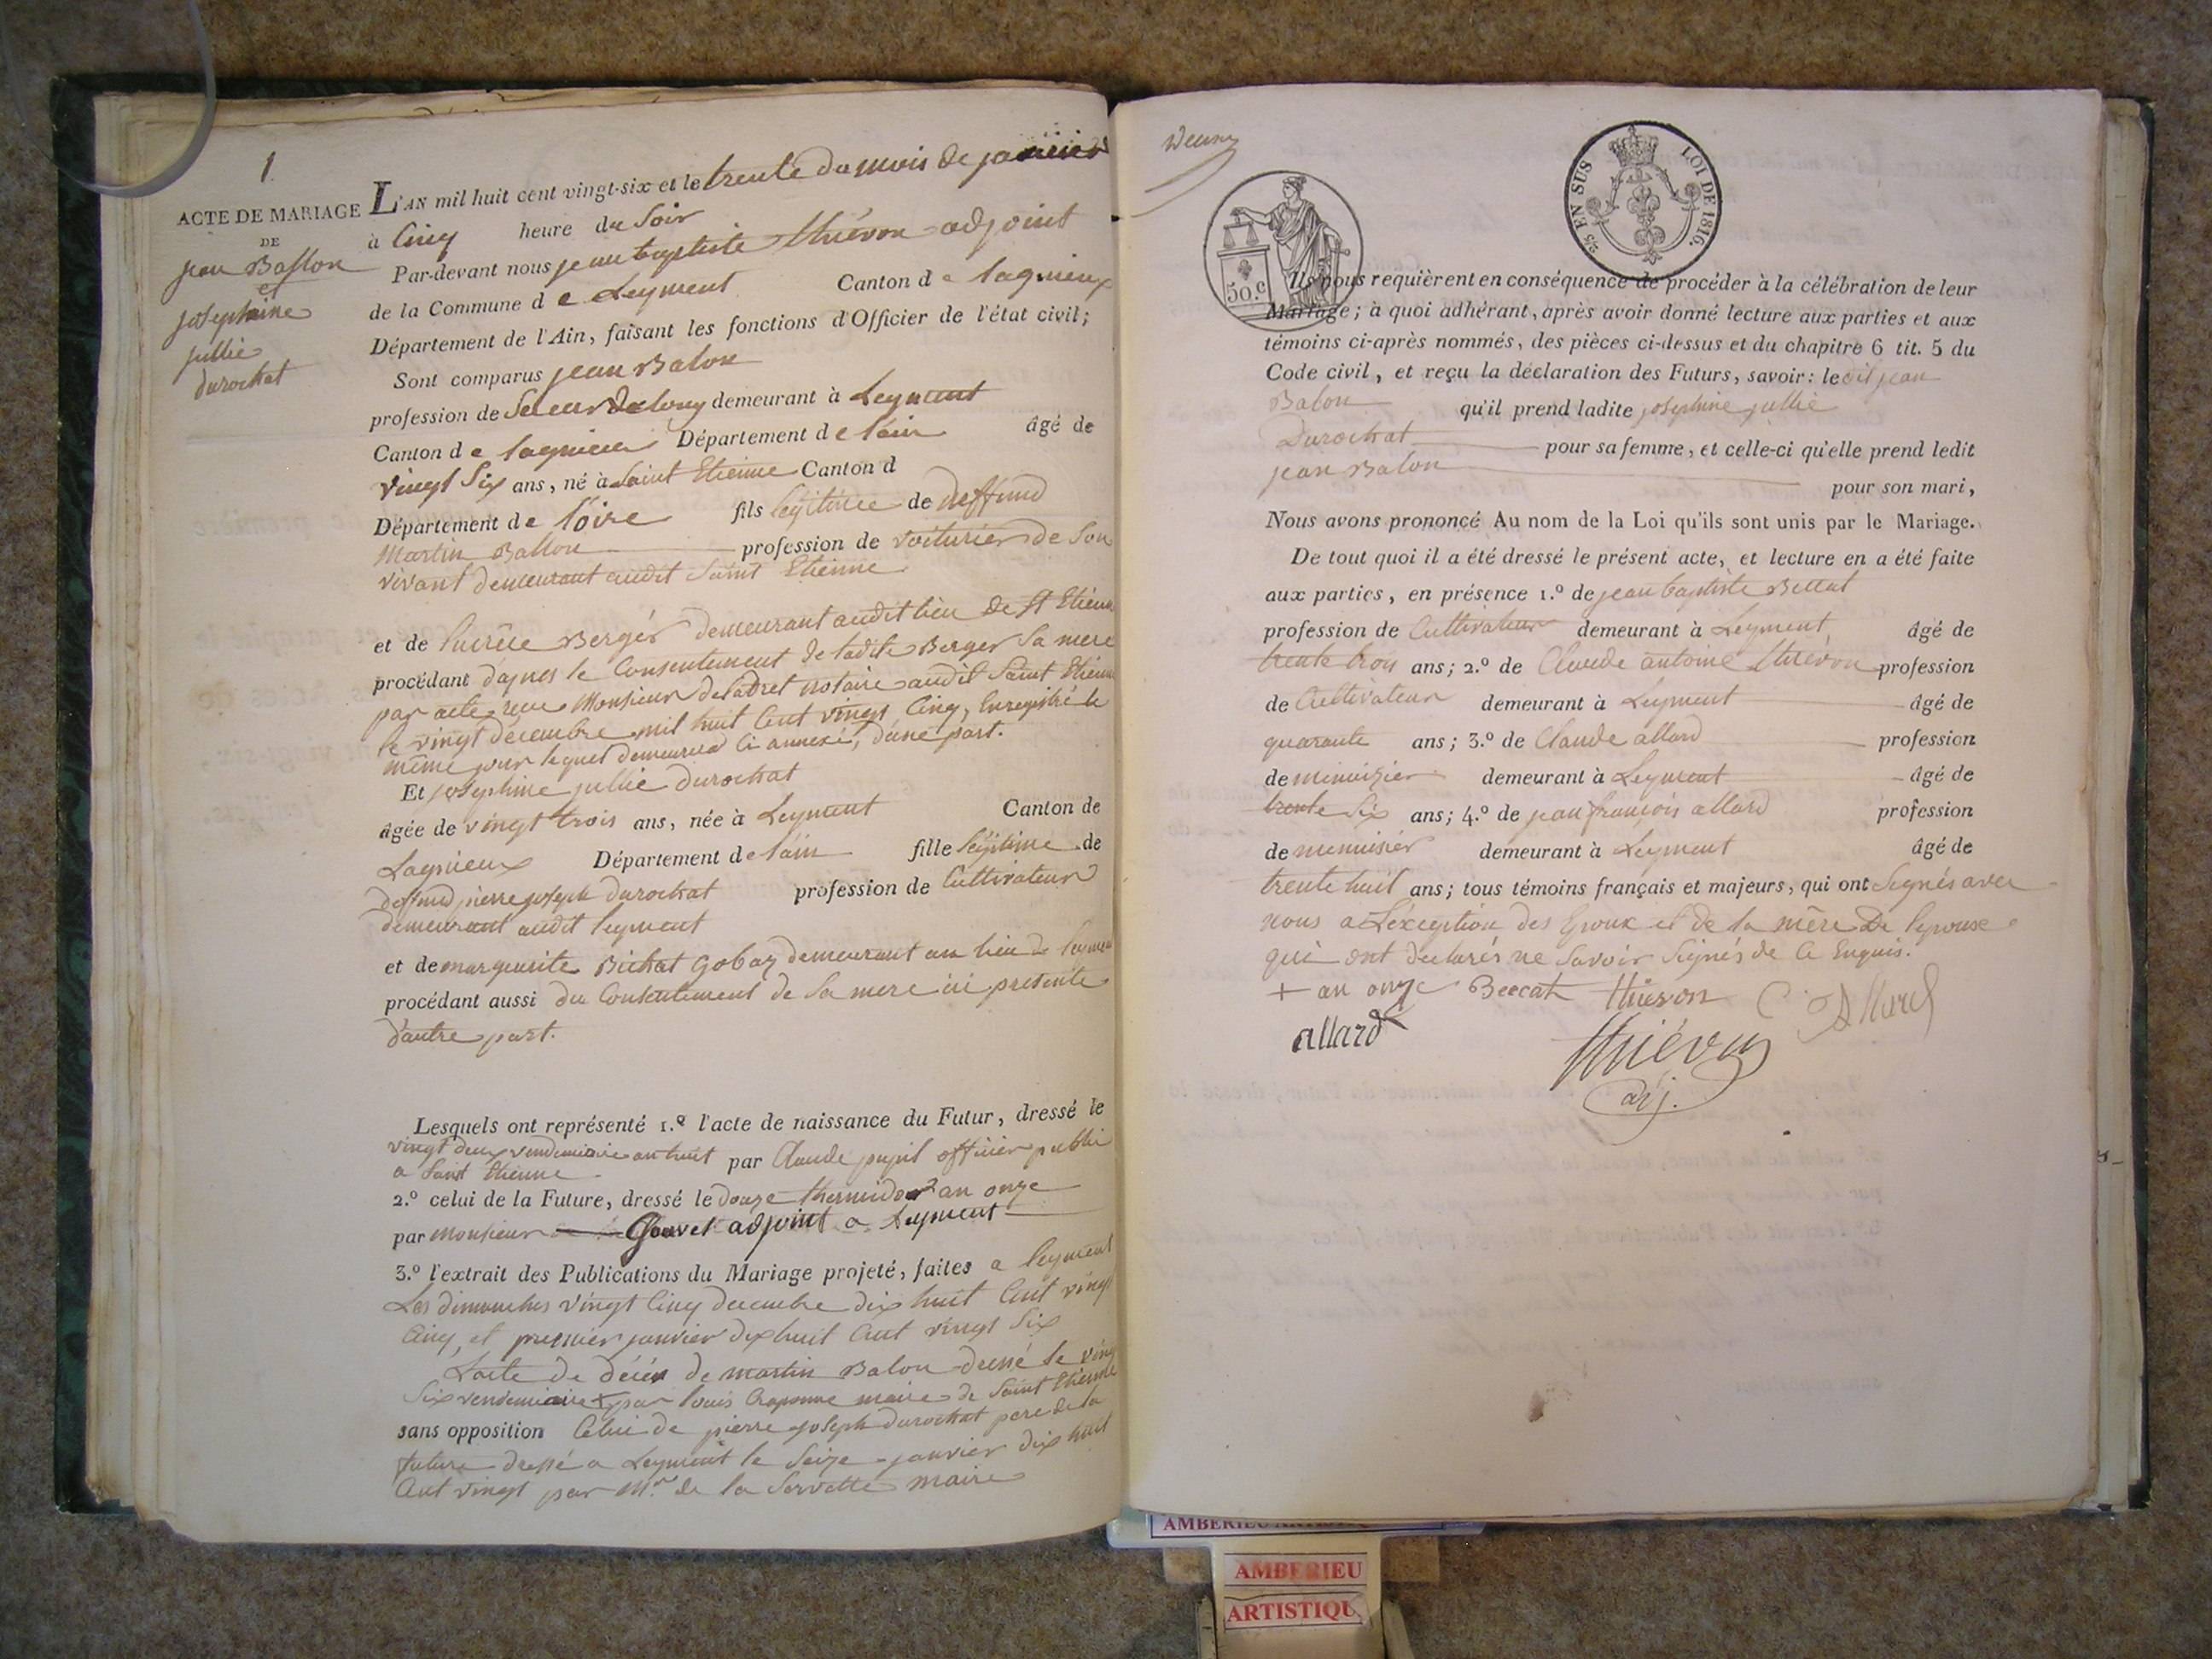 1
ACTE DE MARIAGE
DE
jean Ballon
et
josephine
jullie
durochat
L'AN mil huit cent vingt-six et le trente du mois de janvier
à Cinq heure du Soir
Par-devant nous jean baptiste thiévon adjoint
de la Commune d e Leyment Canton d e lagnieux
Département de l'Ain, faisant les fonctions d'Officier de l'état civil;
Sont comparus jean Balon
profession de Scieur de long demeurant à Leyment
Canton d e lagnieu Département d e lain âgé de
vingt Six ans, né à Saint Etienne Canton d
Département d e loire fils légitime de deffund
Martin Ballon profession de voiturier de Son
vivant demeurant audit Saint Etienne
et de lucrèce Bergér demeurant audit lieu de St Etienne
procédant d'apres le Consentement de ladite Berger Sa mere
par acte reçu Monsieur notaire audit Saint Etienne
le vingt décembre mil huit Cent vingt Cinq, Enregistré le
même jour lequel demeurera Ci annexé, d'une part.
Et josephine jullie durochat
âgée de vingt trois ans, née à Leyment Canton de
Lagnieux Département d e lain fille légitime de
deffund pierre joseph durochat profession de Cultivateur
demeurant audit leyment
et de marguerite Bichat Gobaz demeurant au lieu de leyment
procédant aussi du Consentement de Sa mere ici presente
d'autre part.
Lesquels ont représenté 1.º l'acte de naissance du Futur, dressé le
vingt deux vendemiaire an huit par Claude pupil officier public
a Saint Etienne
2.º celui de la Future, dressé le douze thermidor an onze
par Monsieur Gouvet adjoint a Leyment
3.º l'extrait des Publications du Mariage projeté, faites a leyment
Les dimanches vingt Cinq decembre dix huit Cent vingt
Cinq, et premier janvier dix huit Cent vingt Six
L'acte de décés de martin Balon dressé le vingt
Six vendemiaire + par louis Craponne maire de Saint Etienne
sans opposition Celui de pierre joseph durochat pere de la
future dressé a Leyment le Seize janvier dix huit
Cent vingt par Mr. de la Servette maire
deux
50.c
2/5 EN SUS
LOI DE 1816.
Ils nous requièrent en conséquence de procéder à la célébration de leur
Mariage; à quoi adhérant, après avoir donné lecture aux parties et aux
témoins ci-après nommés, des pièces ci-dessus et du chapitre 6 tit. 5 du
Code civil, et reçu la déclaration des Futurs, savoir: le dit jean
Balon qu'il prend ladite josephine jullie
Durochat pour sa femme, et celle-ci qu'elle prend ledit
jean Balon pour son mari,
Nous avons prononcé Au nom de la Loi qu'ils sont unis par le Mariage.
De tout quoi il a été dressé le présent acte, et lecture en a été faite
aux parties, en présence 1.º de jean baptiste Beccat
profession de Cultivateur demeurant à Leyment, âgé de
trente trois ans; 2.º de Claude antoine thievon profession
de Cultivateur demeurant à Leyment âgé de
quarante ans; 3.º de Claude allard profession
de minuizier demeurant à Leyment âgé de
trente Six ans; 4.º de jean françois allard profession
de menuisier demeurant à Leyment âgé de
trente huit ans; tous témoins français et majeurs, qui ont Signés avec
nous a L'exception des Epoux et de la mère de lepouse
qui ont declarés ne Savoir Signés de Ce Enquis.
+ an onze Beccat thievon C. Allard
allard
thiévon
adj.
AMBERIEU ARTISTIQUE
AMBERIEU
ARTISTIQU